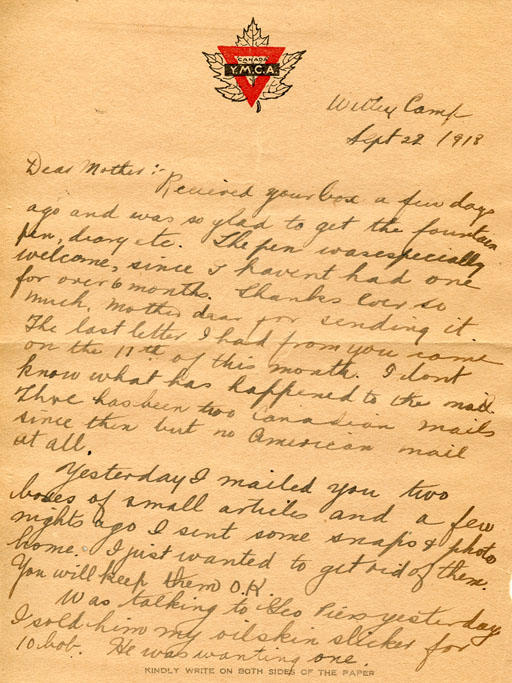 CANADA
Y.M.C.A.
Witley Camp
Sept 22 1918
Dear Mother:-
Received your box a few days
ago and was so glad to get the fountain
pen, diary etc. The pen was especially
welcome, since I havent had one
for over 6 months. Thanks ever so
much, Mother dear for sending it.
The last letter I had from you came
on the 11th of this month. I dont
know what has happened to the mail.
There has been two Canadian mails
since then but no American mail
at all.
Yesterday I mailed you two
boxes of small articles and a few
nights ago I sent some snaps & photo
home. I just wanted to get rid of them.
You will keep them O.K.
Was talking to Geo yesterday
I sold him my oilskin slicker for
10 bob. He was wanting one.
KINDLY WRITE ON BOTH SIDES OF THE PAPER